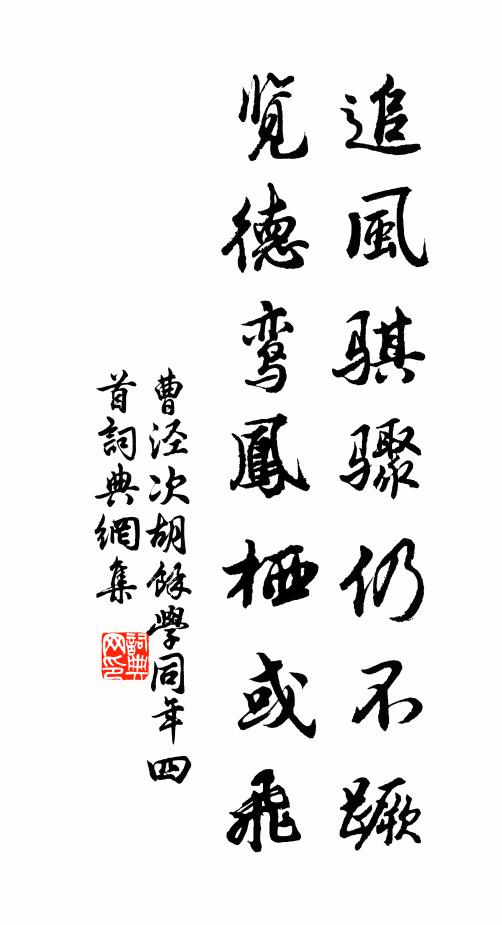 追風骐骤仍不蹶
览德鸾鳳栖或飛
曹泾次胡餘學同年四
首詞典網集
詞典
网印